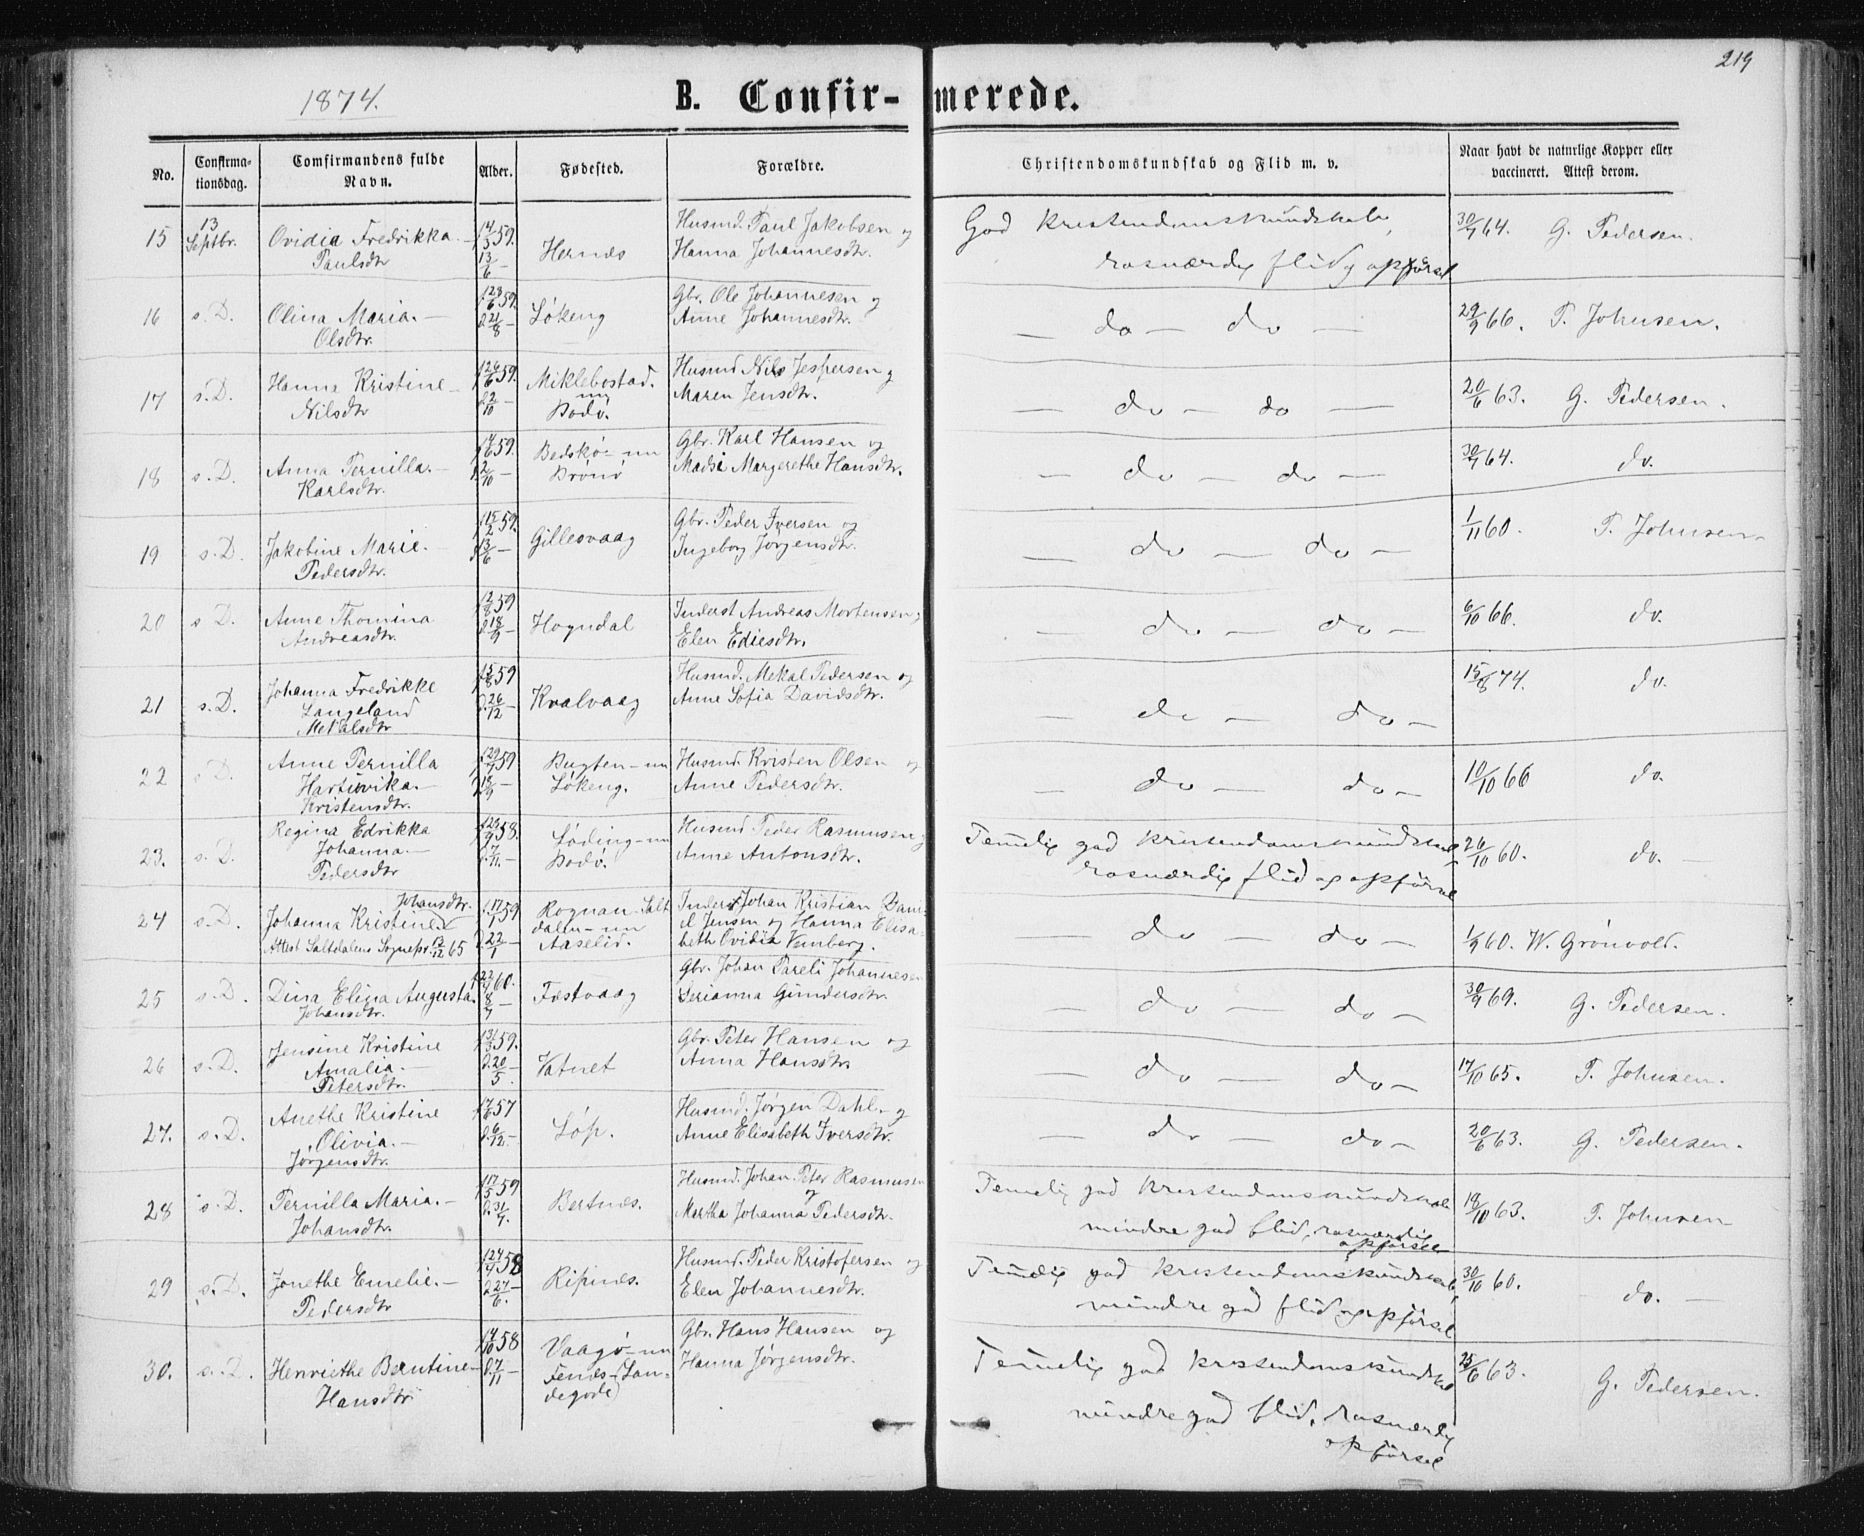 219
1874.
B. Confir- merede.
No.
Confirma-
tionsdag.
Comfirmandens fulde
Navn.
Alder.
Fødested.
Forældre.
Christendomskundskab og Flid m. v.
Naar havt de naturlige Kopper eller
vaccineret. Attest derom.
15 13 Septbr. Ovidia Fredrikka Paulsdtr 59. 13/6 – Hernes Husmd. Paul Jakobsen og Hanna Johannesdtr. God kristendomskundskab, rosværdig flid og opførsel 30/7 64. G. Pedersen.
16 s. D. Olina Maria. – Olsdtr. 28/6 59. 21/8 – Løkeng Gbr. Ole Johannesen og Anne Johannesdtr. – do – do – 29/9 66. T. Johnsen.
17 s. D. Hanna Kristine – Nilsdtr 26/6 59. 2/10 – Miklebostad. nu Bodø. Husmd Nils Jespersen og Maren Jensdtr. – do – do – 20/6 63. G. Pedersen.
18 s. D. Anna Pernilla. – Karlsdtr. 59. 2/10 – nu Brønø Gbr. Karl Hansen og Madsi Margrethe Hansdtr. – do – do – 30/7 64. do.
19 s. D. Jakobine Marie. – Pedersdtr. 15/2 59. 13/6 – Gillesvaag Gbr. Peder Iversen og Ingeborg Jørgensdtr. – do – do – 1/11 60. T. Johnsen.
20 s. D. Anne Thomina Andreasdtr. 59 18/9 – Hogndal Inderst Andreas Mortensen og Elen Ediesdtr. – do – do – 6/10 66. do.
21 s. D. Johanna Fredrikke Langeland Mekalsdtr 15/8 59 26/12 – Kvalvaag Husmd. Mekal Pedersen og Anne Sofia Davidsdtr. – do – do – 15/8 74. do.
22 s. D. Anne Pernilla Hartvika. – Kristensdtr. 59 18/9 – Bugten – nu Løkeng. Husmd. Kristen Olsen og Anne Pedersdtr. – do – do – 10/10 66 do.
23. s. D. Regina Edrikka Johanna. – Pedersdtr 58. 7/11 – Løding – nu Bodø. Husmd Peder Rasmusen og Anne Antonsdtr. Temelig god kristendomskundskab rosværdig flid og opførsel 26/10 60. do. –
24 s. D. Johanna Kristine. Johansdtr. Attest Saltdalens Sognepr. 12/12 65 17/1 59 22/1 – Rognan – Saltdalen – nu Aaselid. Inderst Johan Kristian Daniel Jensen og Hanna Elisabeth Ovidia – do – do – 1/9 60. W. Grönvold.
25 s. D. Dina Elina Augusta. Johansdtr. 60. 8/7 – Fæstvaag Gbr. Johan Pareli Johannesen Serianna Gundersdtr. – do – do – 30/9 69. G. Pedersen.
26 s. D. Jensine Kristine Amalia. – Petersdtr. 59. 20/5. Vatnet Gbr. Peter Hansen og Anna Hansdtr. – do – do – 17/10 65. T. Johnsen.
27. s. D. Anethe Kristine Olivia. – Jørgensdtr. 57 6/12 – Løp. Husmd. Jørgen Dahl. og Anne Elisabeth Iversdtr. – do – do – 20/6 63. G. Pedersen.
28 s. D. Pernilla Maria. – Johansdtr. 17/5 59 31/7. Bertnes. Husmd. Johan Peter Rasmusen og Martha Johanna Pedersdtr. Temelig god kristendomskundskab mindre god flid, rosværdig opførsel 18/10 63. T. Johnsen
29 s. D. Jonethe Emelie. – Pedersdtr 24/4 58 27/6. Ripnes. Husmd. Peder Kristofersen og Elen Johannesdtr. Temelig god kristendomskundskab, mindre god flid og opførsel 30/10 60. – do. –
30. s. D. Henriethe Berntine – Hansdtr 14/10 58 7/11 – Vaagø – nu Fenes – (Landegode) Gbr. Hans Hansen og Hanna Jørgensdtr. Temelig god kristendomskundskab mindre god flid, rosværdig opførsel 25/6 63. G. Pedersen.